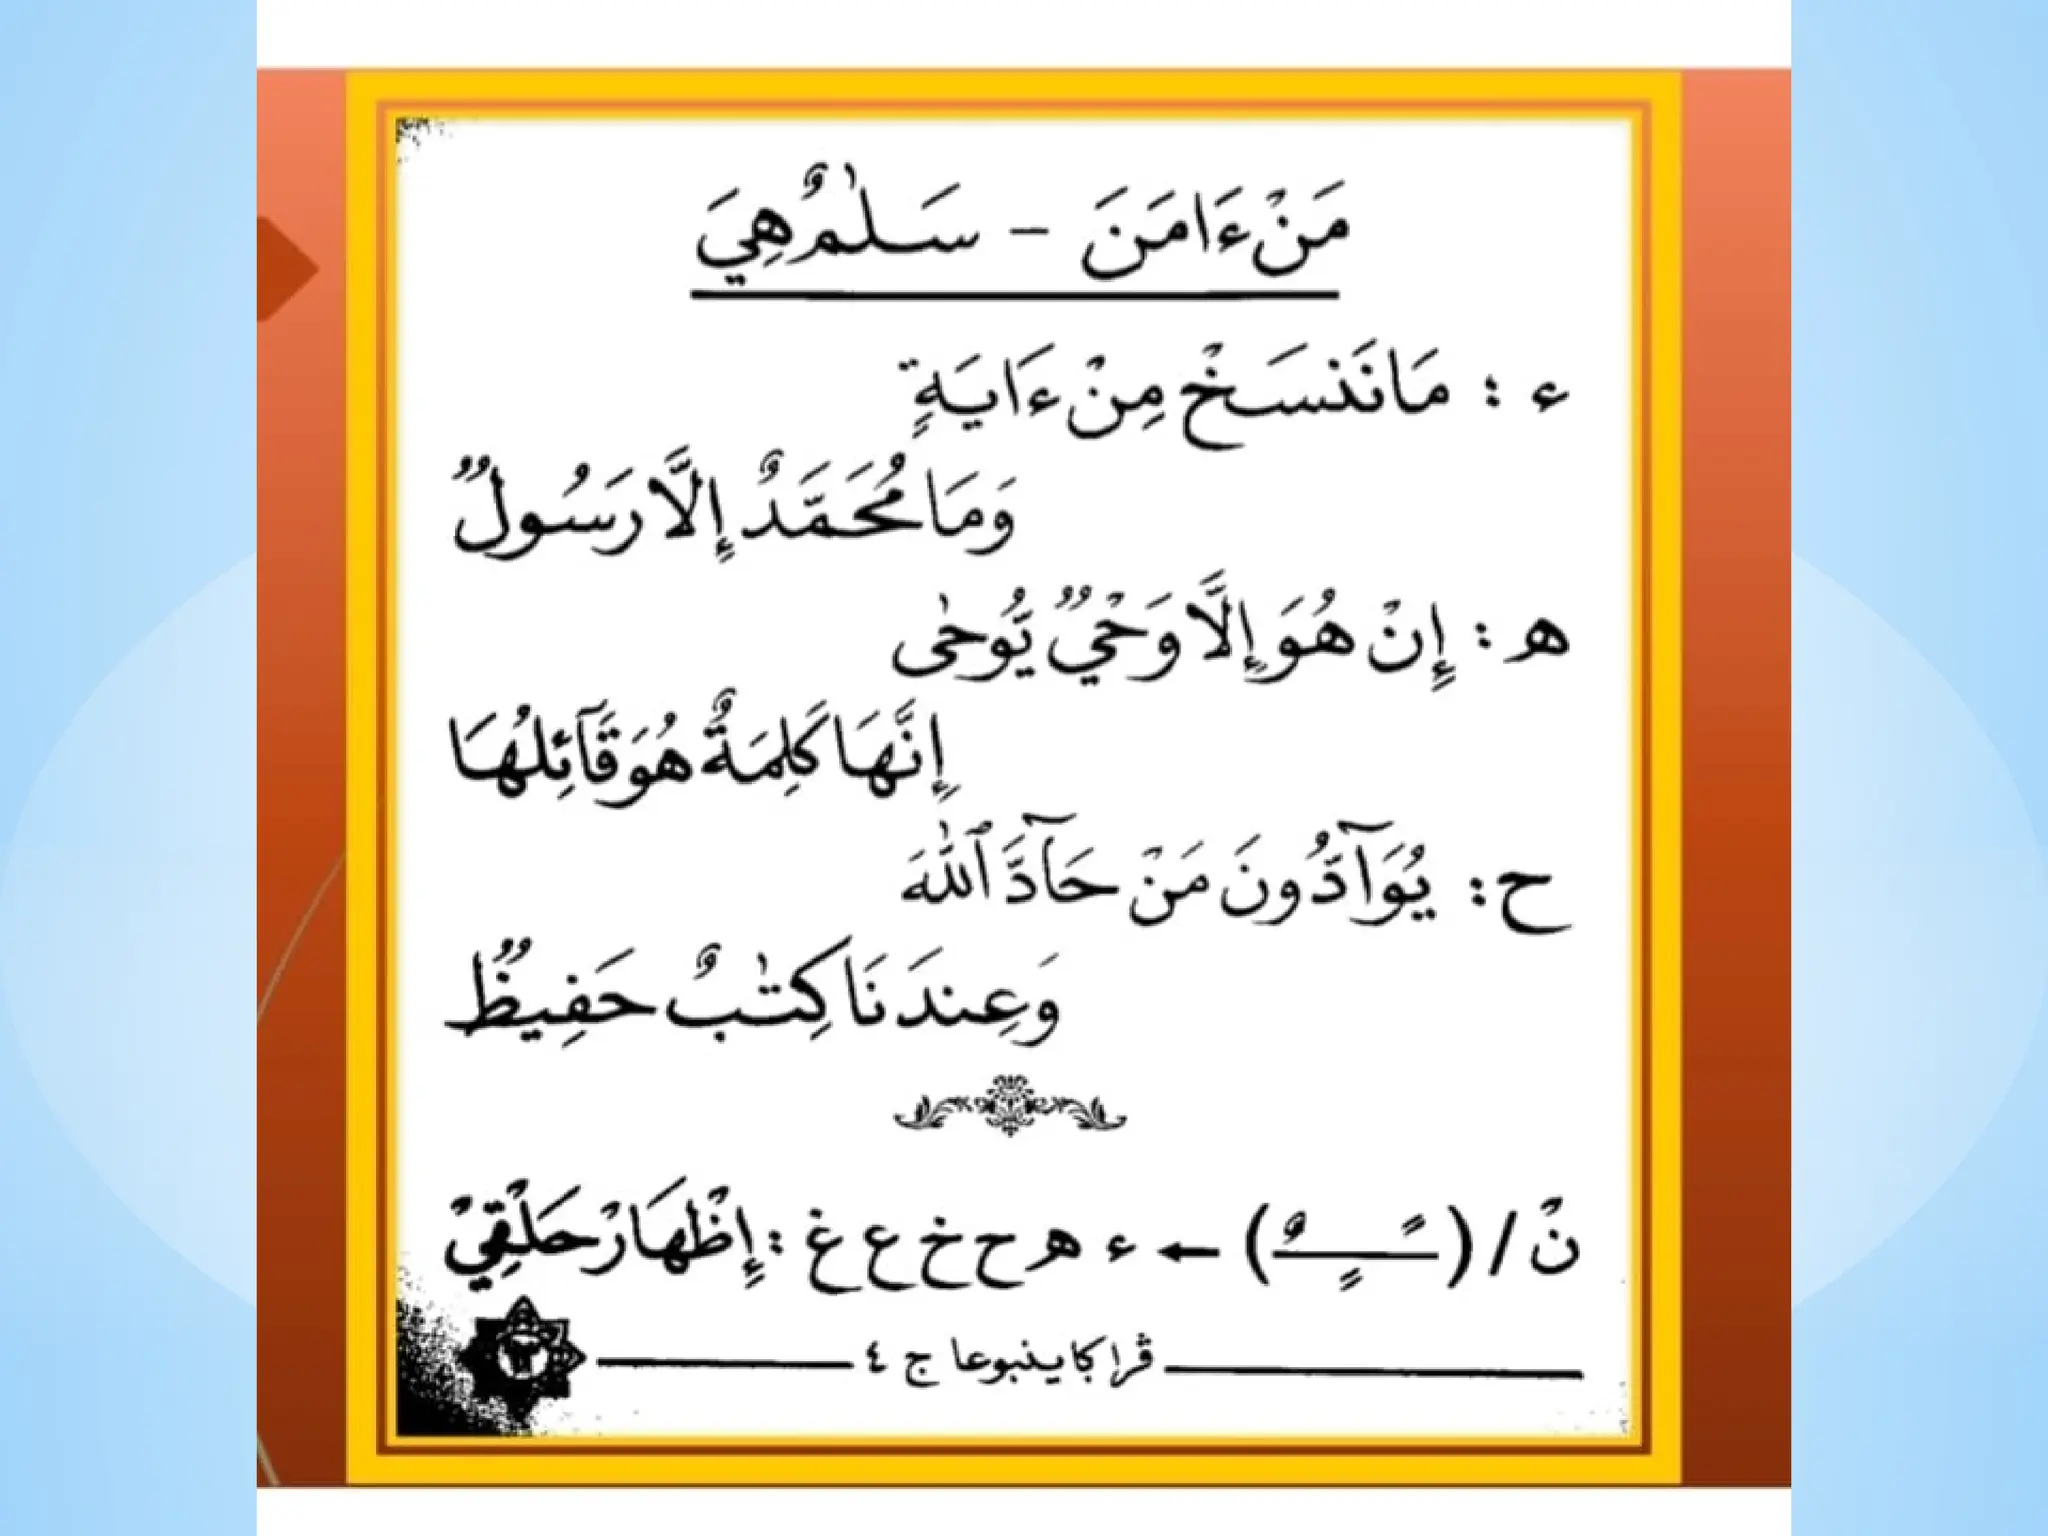 مَنْ ءَامَنَ - سَلٰمٌ هِيَ
ء : مَانَنسَخْ مِنْ ءَايَةٍ
وَمَا مُحَمَّدٌ إِلَّا رَسُولٌ
ه : إِنْ هُوَ إِلَّا وَحْيٌ يُّوحٰى
إِنَّهَا كَلِمَةٌ هُوَ قَآئِلُهَا
ح : يُوَآدُّونَ مَنْ حَآدَّ ٱللّٰهَ
وَعِندَنَا كِتٰبٌ حَفِيظٌ
نْ / (ـًـٍـٌ) ← ء ه ح خ ع غ : إِظْهَارْ حَلْقِيْ
ڤراكتيس ينبوعا ج ٤